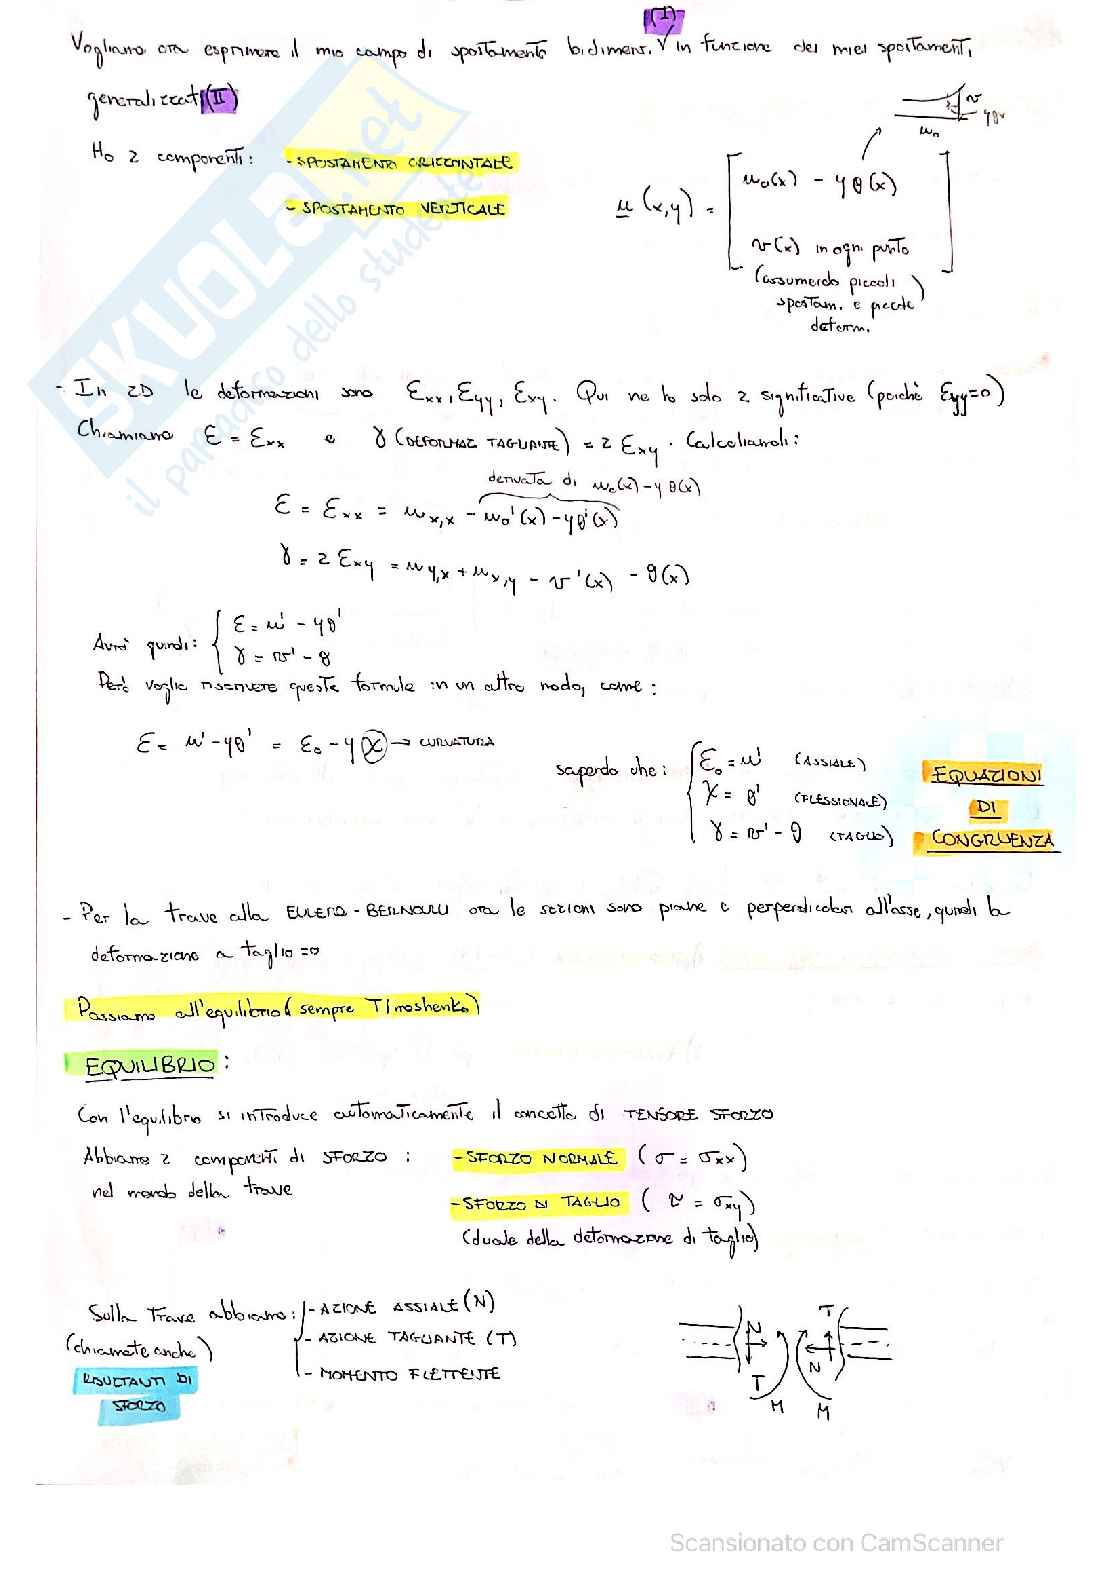 (I)
Vogliamo ora esprimere il mio campo di spostamento bidimens. V in funzione dei miei spostamenti
generalizzati (II)
Ho 2 componenti: - SPOSTAMENTO ORIZZONTALE
- SPOSTAMENTO VERTICALE
u (x,y) = [ u₀(x) - yθ(x)
v(x) in ogni punto ]
(assumendo piccoli
spostam. e piccole
deform. )
v
yθ
u₀
- In 2D le deformazioni sono Ɛxx, Ɛyy, Ɛxy. Qui ne ho solo 2 significative (perchè Ɛyy=0)
Chiamiamo Ɛ = Ɛxx e γ (DEFORMAZ TAGLIANTE) = 2 Ɛxy. Calcoliamoli:
derivata di u₀(x) - yθ(x)
Ɛ = Ɛxx = ux,x - u₀'(x) - yθ'(x)
γ = 2 Ɛxy = uy,x + ux,y - v'(x) - θ(x)
Avrò quindi: { Ɛ = u' - yθ'
γ = v' - θ
Però voglio riscrivere queste formule in un altro modo, come:
Ɛ = u' - yθ' = Ɛ₀ - yχ → CURVATURA
sapendo che: { Ɛ₀ = u' (ASSIALE)
χ = θ' (FLESSIONALE)
γ = v' - θ (TAGLIO)
EQUAZIONI
DI
CONGRUENZA
- Per la trave alla EULERO - BERNOULLI ora le sezioni sono piane e perpendicolari all'asse, quindi la
deformazione a taglio = 0
Passiamo all'equilibrio (sempre Timoshenko)
EQUILIBRIO:
Con l'equilibrio si introduce automaticamente il concetto di TENSORE SFORZO
Abbiamo 2 componenti di SFORZO : - SFORZO NORMALE (σ = σxx)
nel mondo della trave
- SFORZO DI TAGLIO ( τ = σxy)
(duale della deformazione di taglio)
Sulla Trave abbiamo: - AZIONE ASSIALE (N)
(chiamate anche) - AZIONE TAGLIANTE (T)
RISULTANTI DI - MOMENTO FLETTENTE
SFORZO
N
T
M
T
N
M
Scansionato con CamScanner
SKUOLA.net
il paradiso dello studente